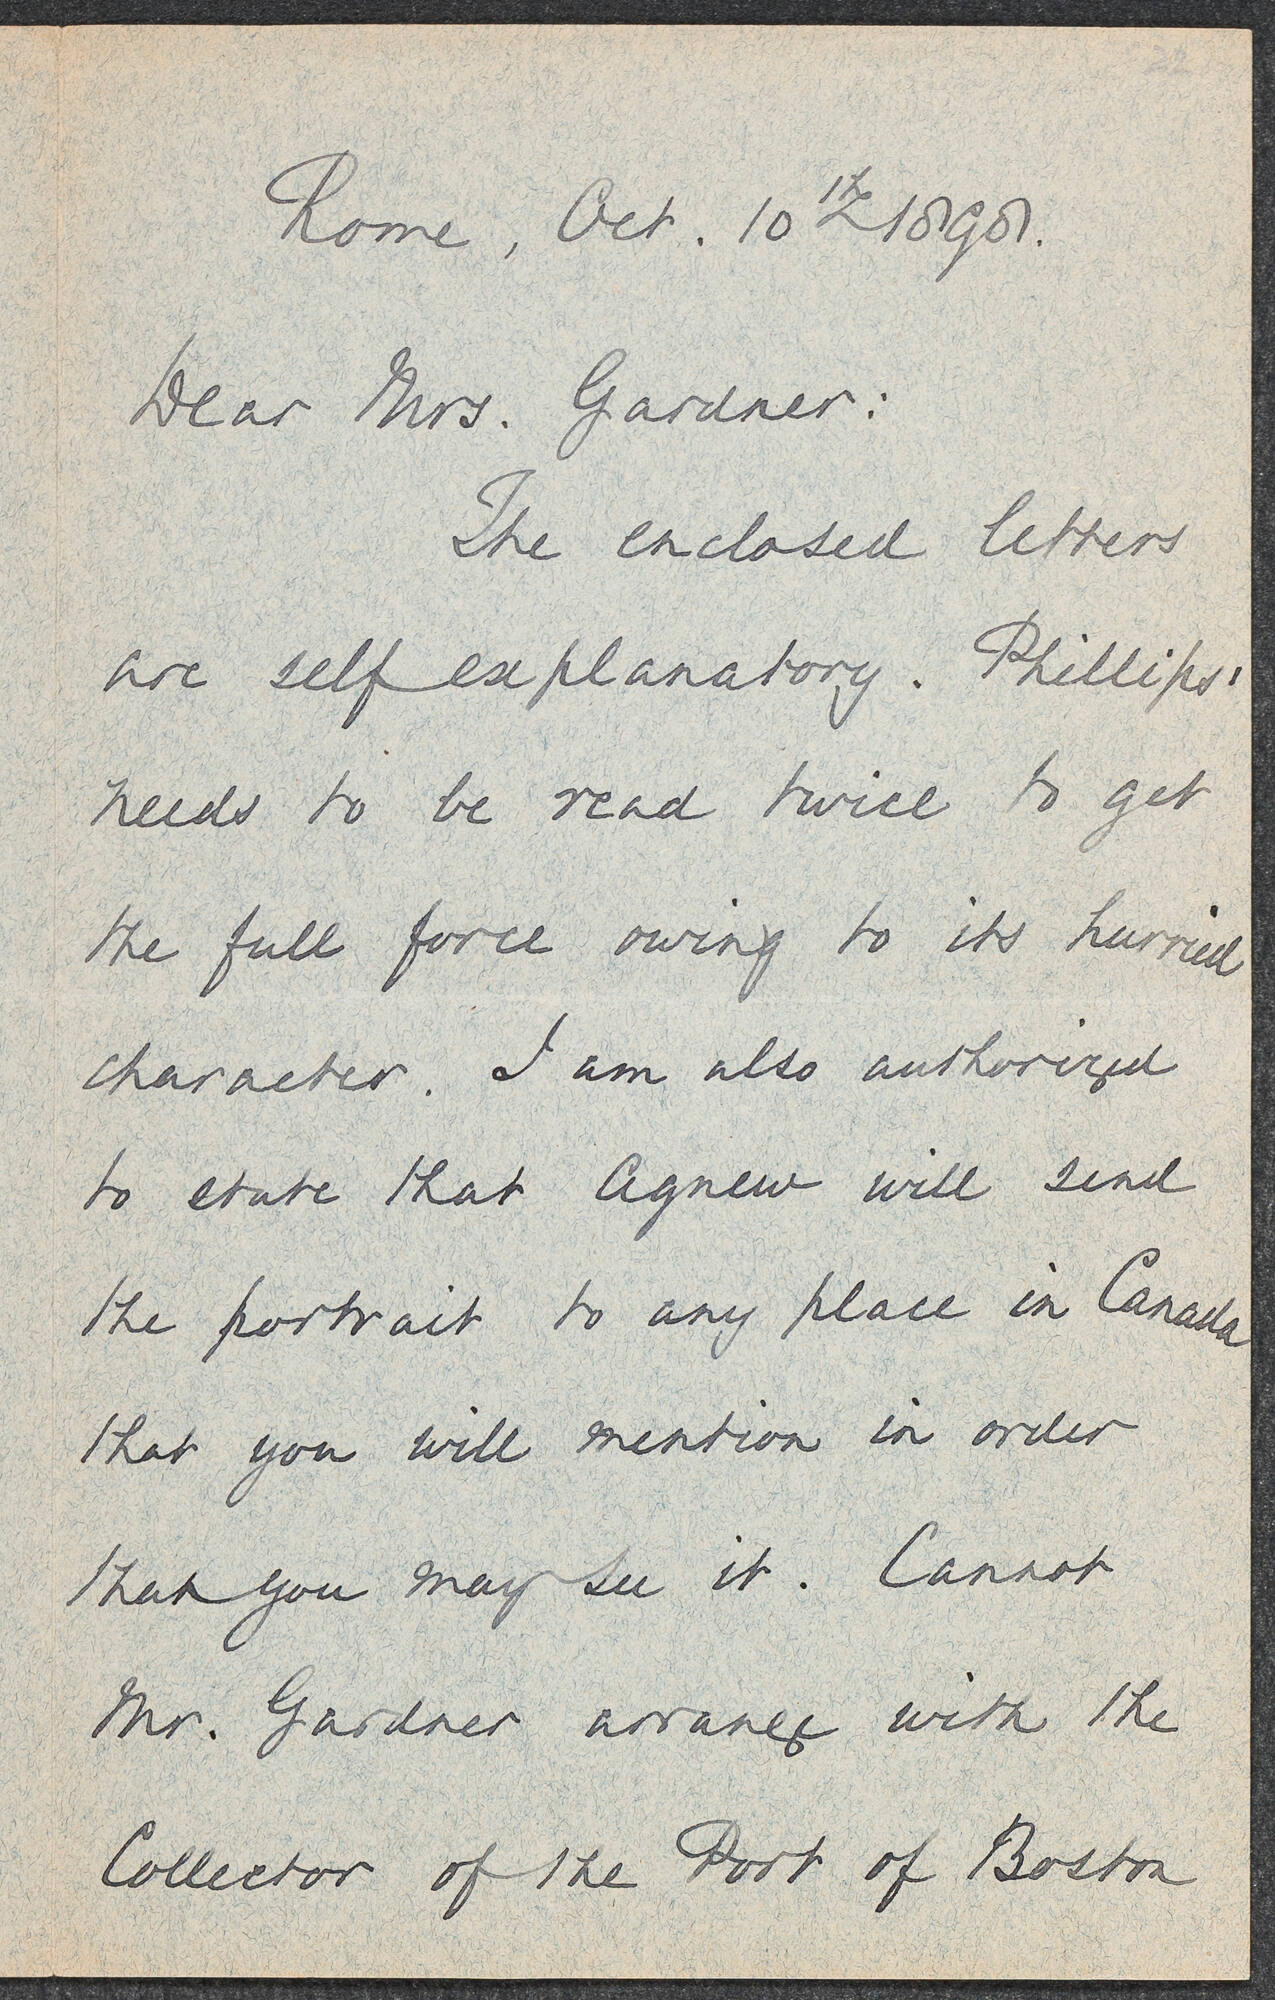 22
Rome, Oct. 10th 1898.
Dear Mrs. Gardner:
The enclosed letters
are self explanatory. Phillips'
needs to be read twice to get
the full force owing to its hurried
character. I am also authorized
to state that Agnew will send
the portrait to any place in Canada
that you will mention in order
that you may see it. Cannot
Mr. Gardner arrange with the
Collector of the Port of Boston